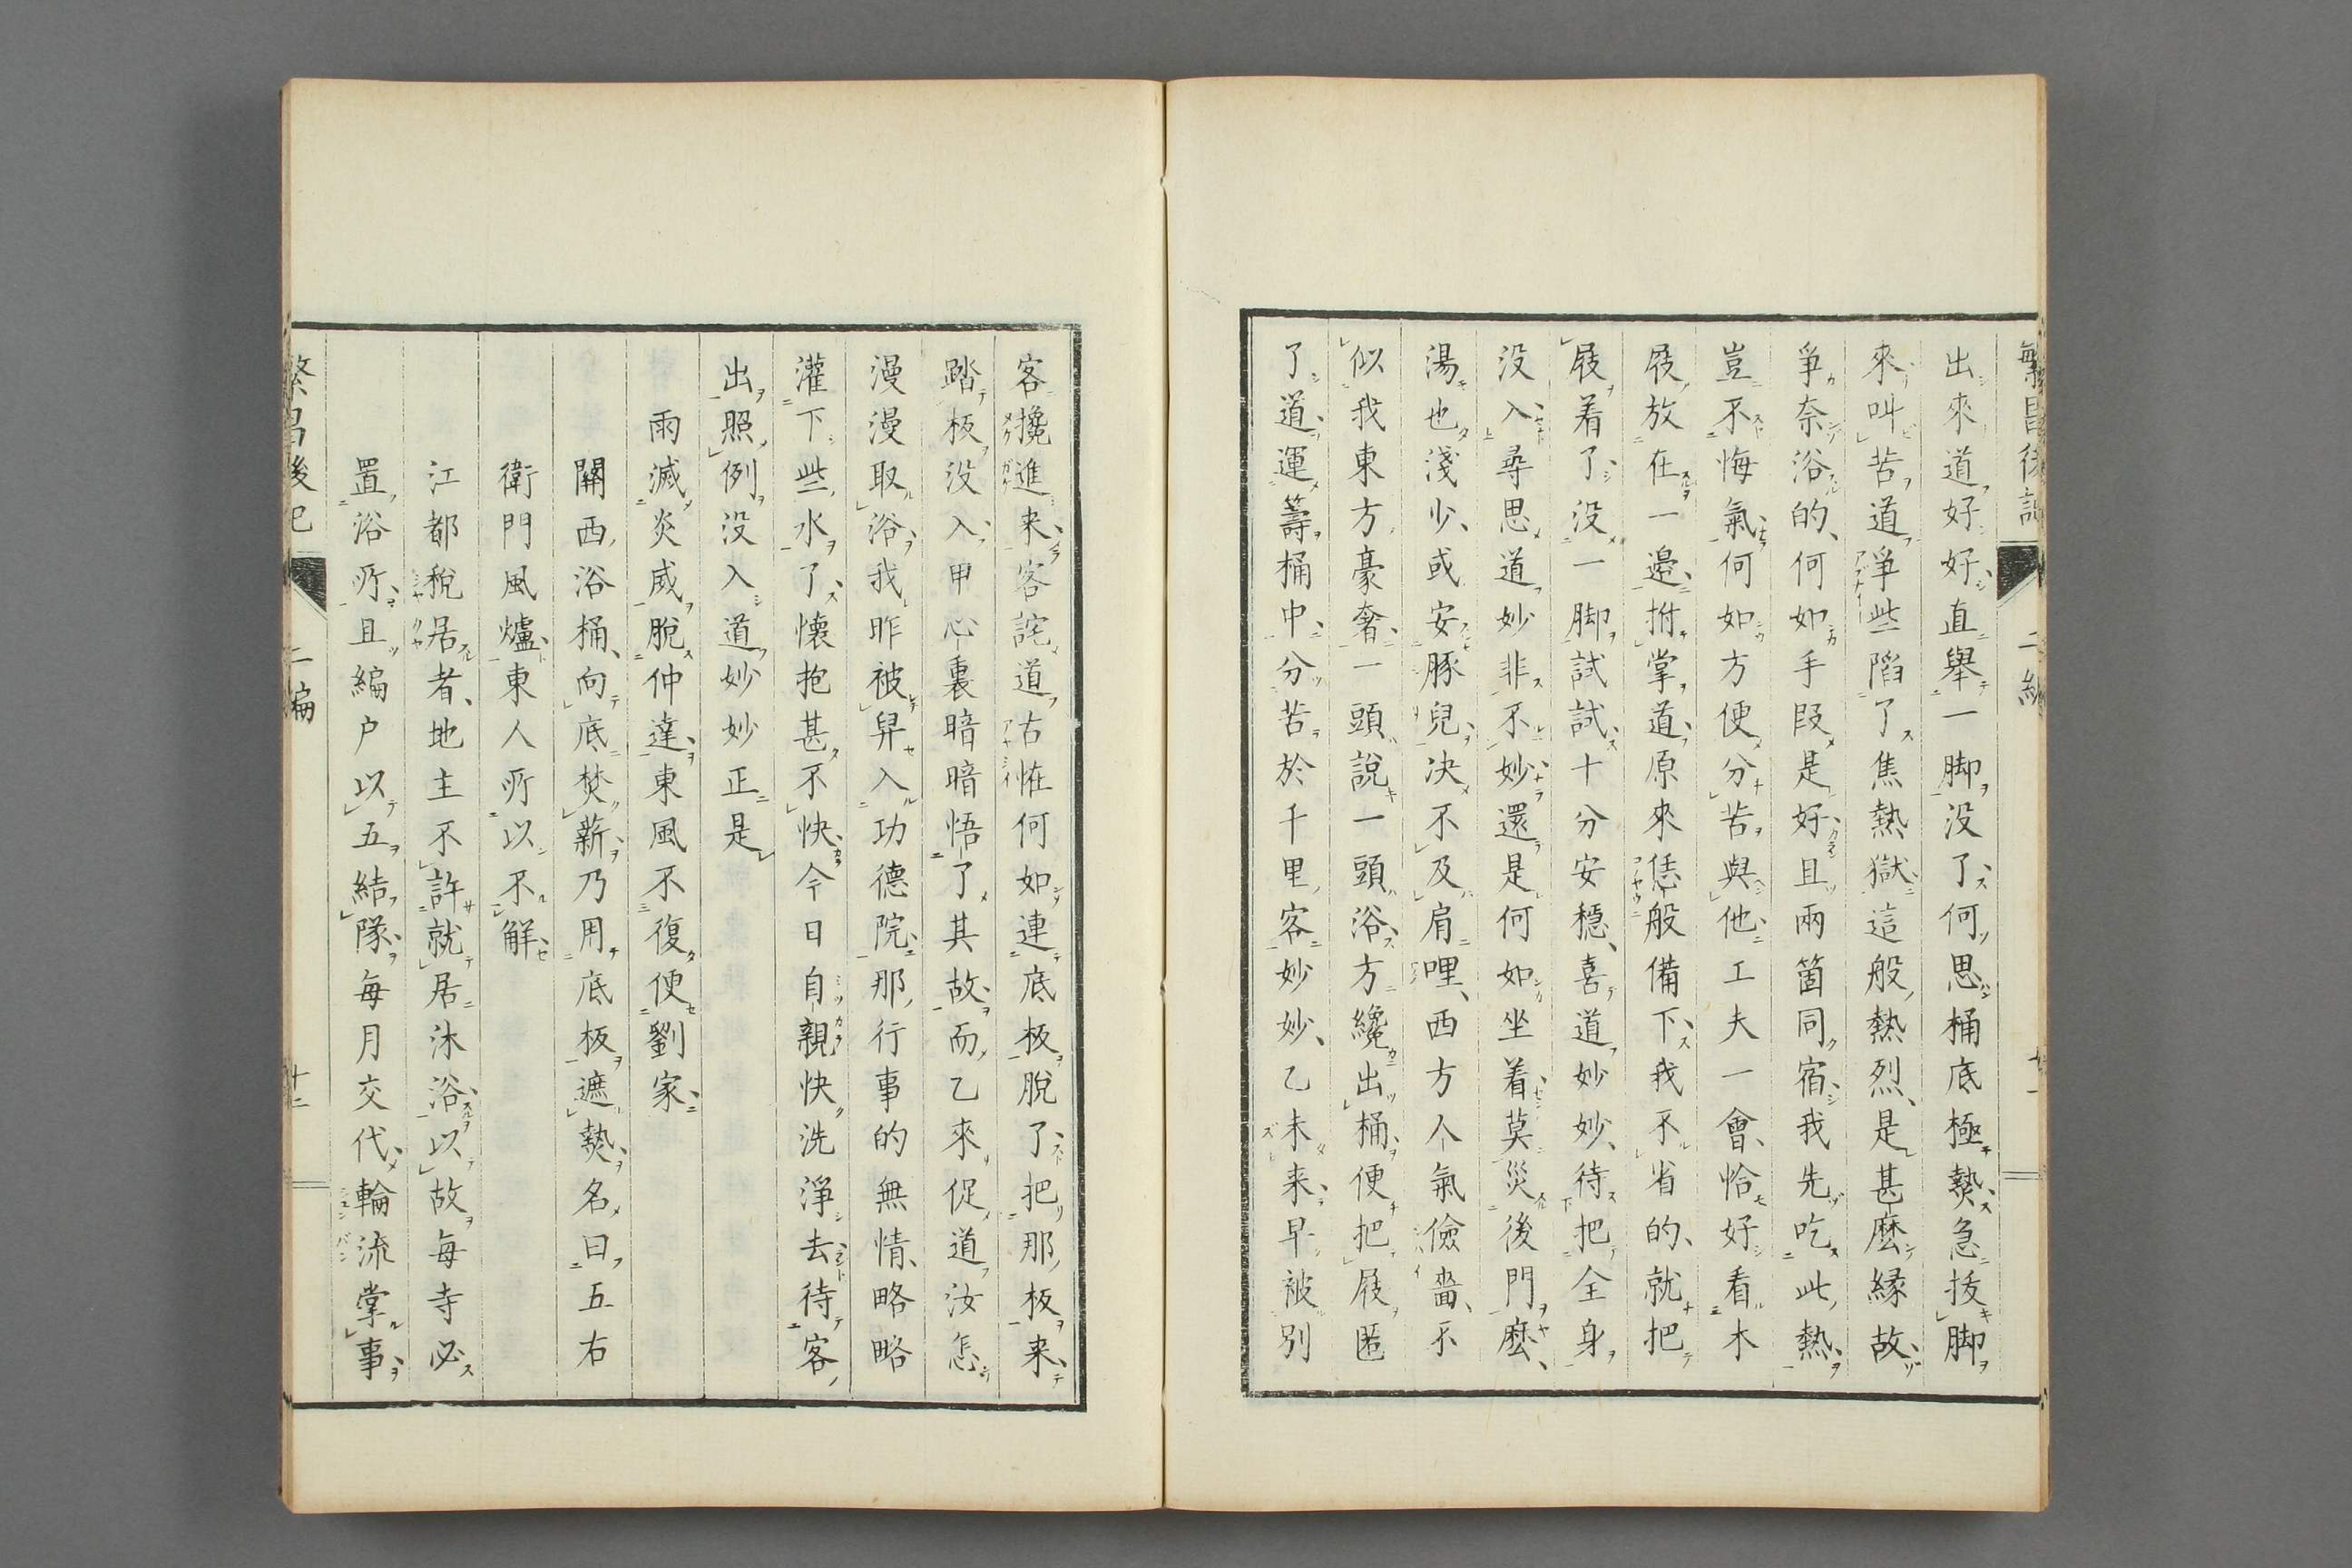 繁昌後記 二編
出來道好好直舉一脚没了何思桶底極熱急拔脚
來叫苦道爭些陷了焦熱獄這般熱烈是甚麼縁故
爭奈浴的何如手段是好且兩箇同宿我先吃此熱
豈不悔氣何如方便分苦與他工夫一會恰好看木
屐放在一邊拊掌道原來恁般備下我不省的就把
屐着了没一脚試試十分安穩喜道妙妙待把全身
没入尋思道妙非不妙還是何如坐着莫災後門麼
湯也淺少或安豚兒决不及肩哩西方人氣儉嗇不
似我東方豪奢一頭説一頭浴方纔出桶便把屐匿
了道運籌桶中分苦於千里客妙妙乙未来早被別
客攙進来客詫道古怪何如連底板脫了把那板来
踏板没入甲心裏暗暗悟了其故而乙來促道汝怎
漫漫取浴我昨被舁入功德院那行事的無情略略
灌下些水了懷抱甚不快今日自親快快洗淨去待客
出照例没入道妙妙正是
雨滅炎威脫仲達東風不復便劉家
關西浴桶向底焚薪乃用底板遮熱名曰五右
衛門風爐東人所以不解
江都稅居者地主不許就居沐浴以故每寺必
置浴所且編户以五結隊每月交代輪流掌事
繁昌後記 二編 十二